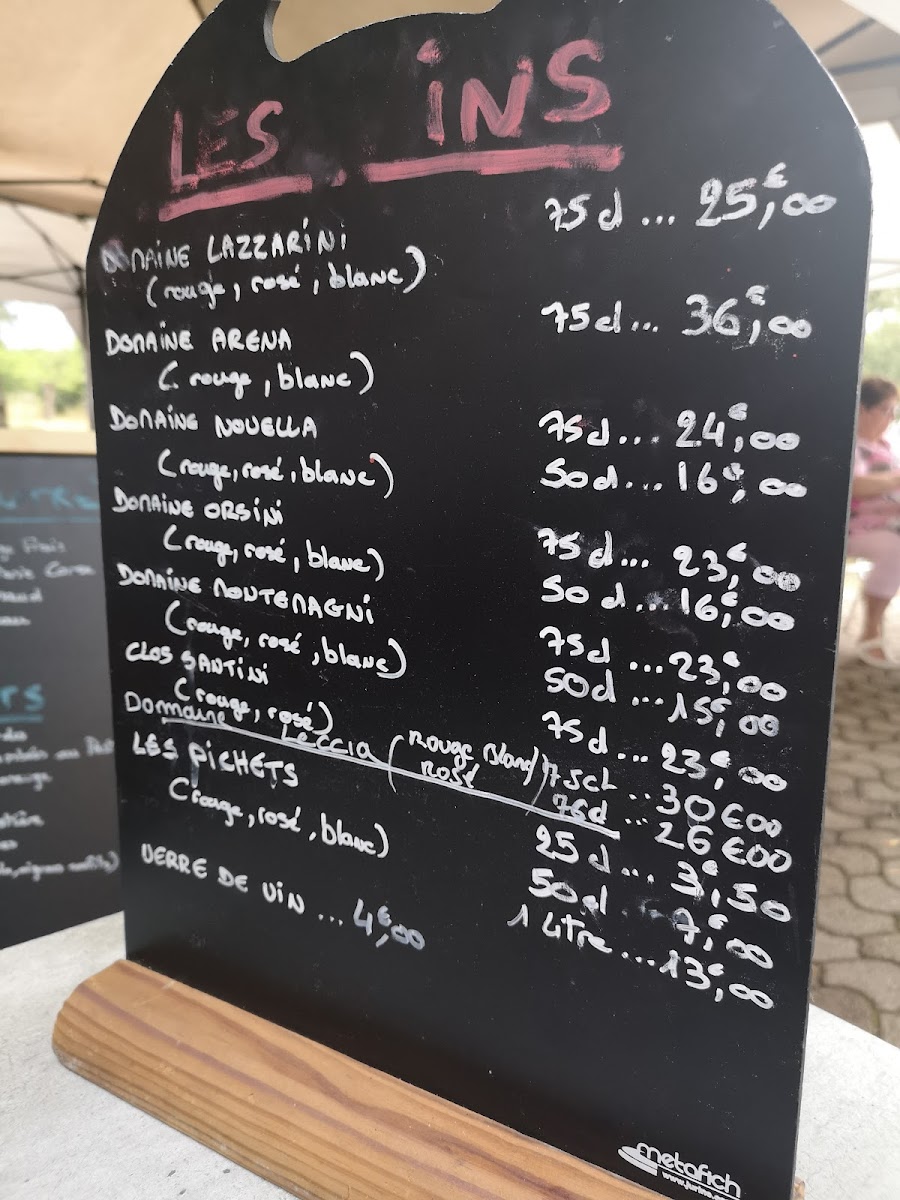 LES INS
75 cl ... 25€,00
DOMAINE LAZZARINI
(rouge, rosé, blanc)
75 cl ... 36€,00
DOMAINE ARENA
(rouge, blanc)
DOMAINE NOVELLA
75 cl ... 24€,00
(rouge, rosé, blanc)
50 cl ... 16€,00
DOMAINE ORSINI
(rouge, rosé, blanc)
75 cl ... 23€,00
DOMAINE MONTEMAGNI
50 cl ... 16€,00
(rouge, rosé, blanc)
75 cl ... 23€,00
CLOS SANTINI
50 cl ... 15€,00
(rouge, rosé)
75 cl ... 23€,00
Domaine Leccia (Rouge Blanc) 75cl ... 30€00
Rosé 75cl ... 26€00
LES PICHETS
(rouge, rosé, blanc)
25 cl ... 3€,50
50 cl ... 7€,00
1 Litre ... 13€,00
VERRE DE VIN ... 4€,00
metafich